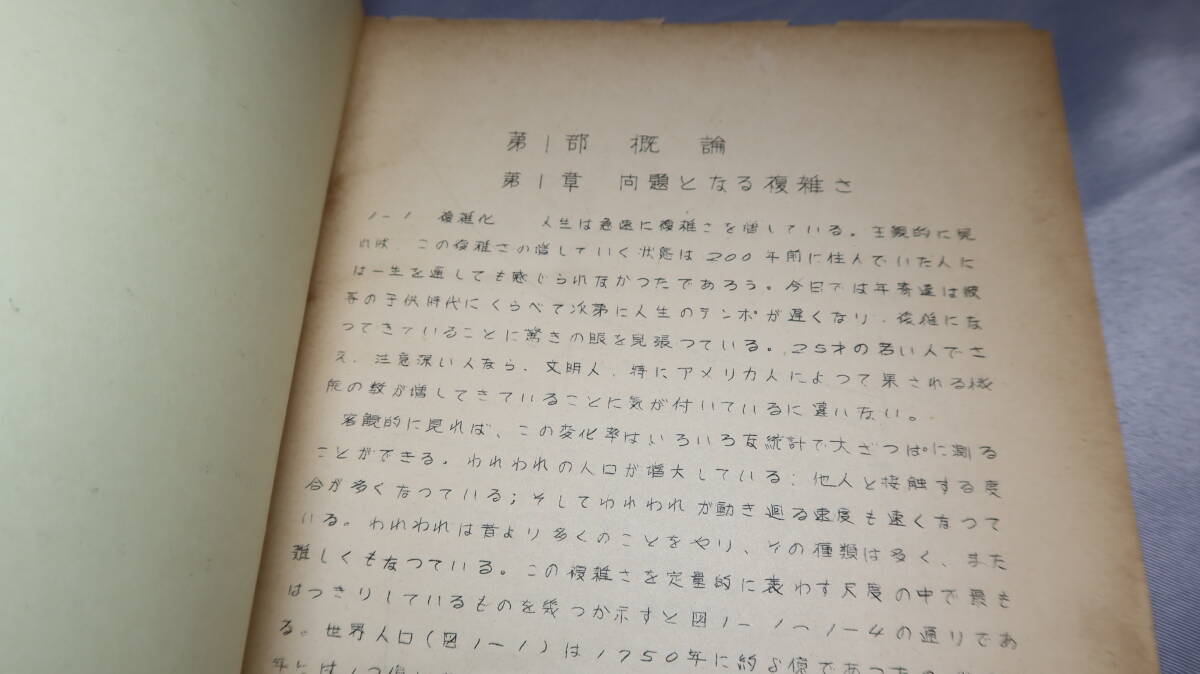 第1部 概論
第1章 問題となる複雑さ
1-1 複雑化 人生は急速に複雑さを増している。主観的に見
れば、この複雑さの増していく状態は200年前に住んでいた人に
は一生を通しても感じられなかつたであろう。今日では年寄達は彼
等の子供時代にくらべて次第に人生のテンポが遅くなり、複雑にな
つてきていることに驚きの眼を見張つている。25才の若い人でさ
え、注意深い人なら、文明人、特にアメリカ人によつて果される機
能の数が増してきていることに気が付いているに違いない。
客観的に見れば、この変化率はいろいろな統計で大ざつぱに測る
ことができる。われわれの人口が増大している; 他人と接触する度
合が多くなつている; そしてわれわれが動き廻る速度も速くなつて
いる。われわれは昔より多くのことをやり、その種類は多く、また
難しくもなつている。この複雑さを定量的に表わす尺度の中で最も
はつきりしているものを幾つか示すと図1-1〜1-4の通りであ
る。世界人口(図1-1)は1750年に約5億であつた